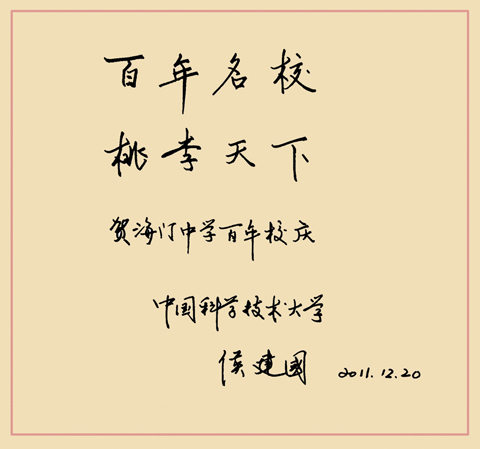 百年名校
桃李天下
贺海门中学百年校庆
中国科学技术大学
侯建國 2011.12.20